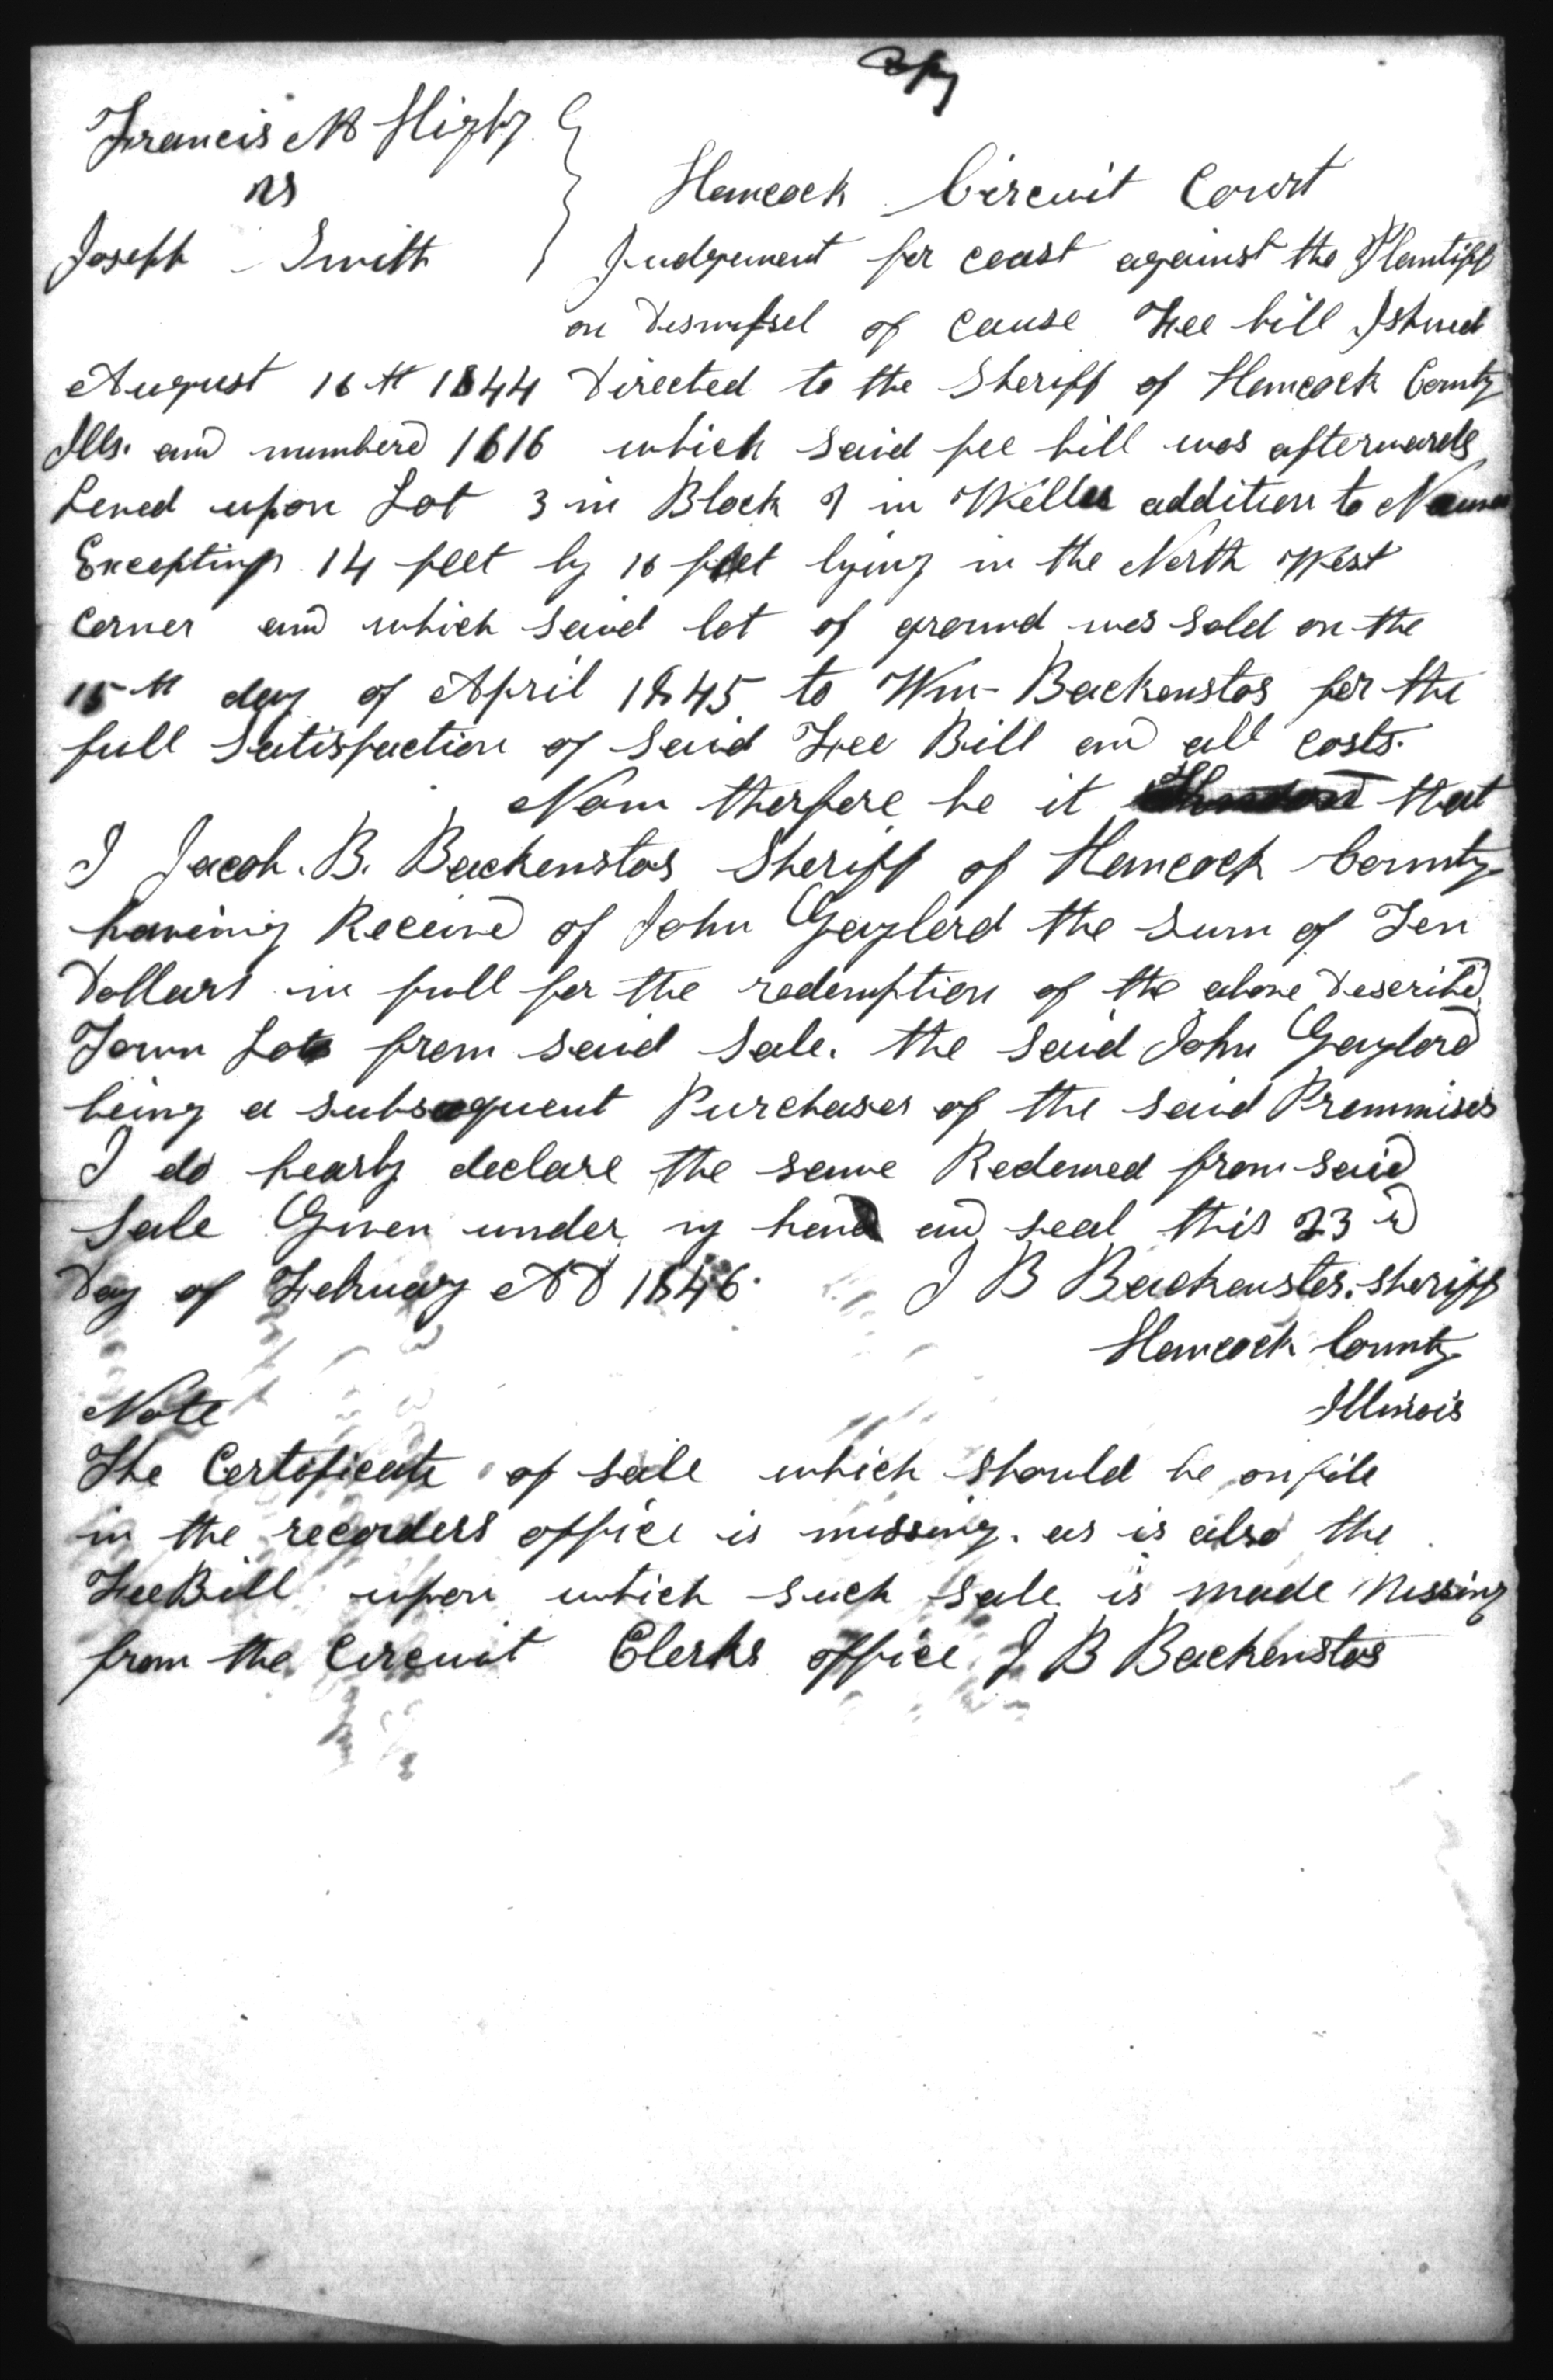 Copy
Francis M Higby
vs
Joseph Smith
Hancock Circuit Court
Judgement for coast against the Plantiff
on Dismissel of cause Fee bill Ishued
August 16th 1844 Directed to the Sheriff of Hancock County
Ills. and numberd 1616 which said fee bill was afterwards
Leved upon Lot 3 in Block 7 in Wells addition to Nauvoo
Excepting 14 feet by 16 feet lying in the North West
corner and which said lot of ground was sold on the
15th day of April 1845 to Wm Backenstos for the
full Satisfaction of Said Fee Bill and all costs.
Now therfore be it that
I Jacob. B. Backenstos Sheriff of Hancock County
haveing Received of John Gaylord the Sum of Ten
Dollars in full for the redemption of the above Described
Town Lot from said Sale. the Said John Gaylord
being a subsequent Purchaser of the said Premmises
I do hearby declare the same Redemed from said
Sale Given under my hand and seal this 23rd
Day of February AD 1846. J B Backenstos. Sheriff
Hancock County
Illinois
Note
The Certificate of sale which should be on file
in the recorders office is missing. as is also the
Fee Bill upon which such sale is made Missing
from the Circuit Clerks office J B Backenstos